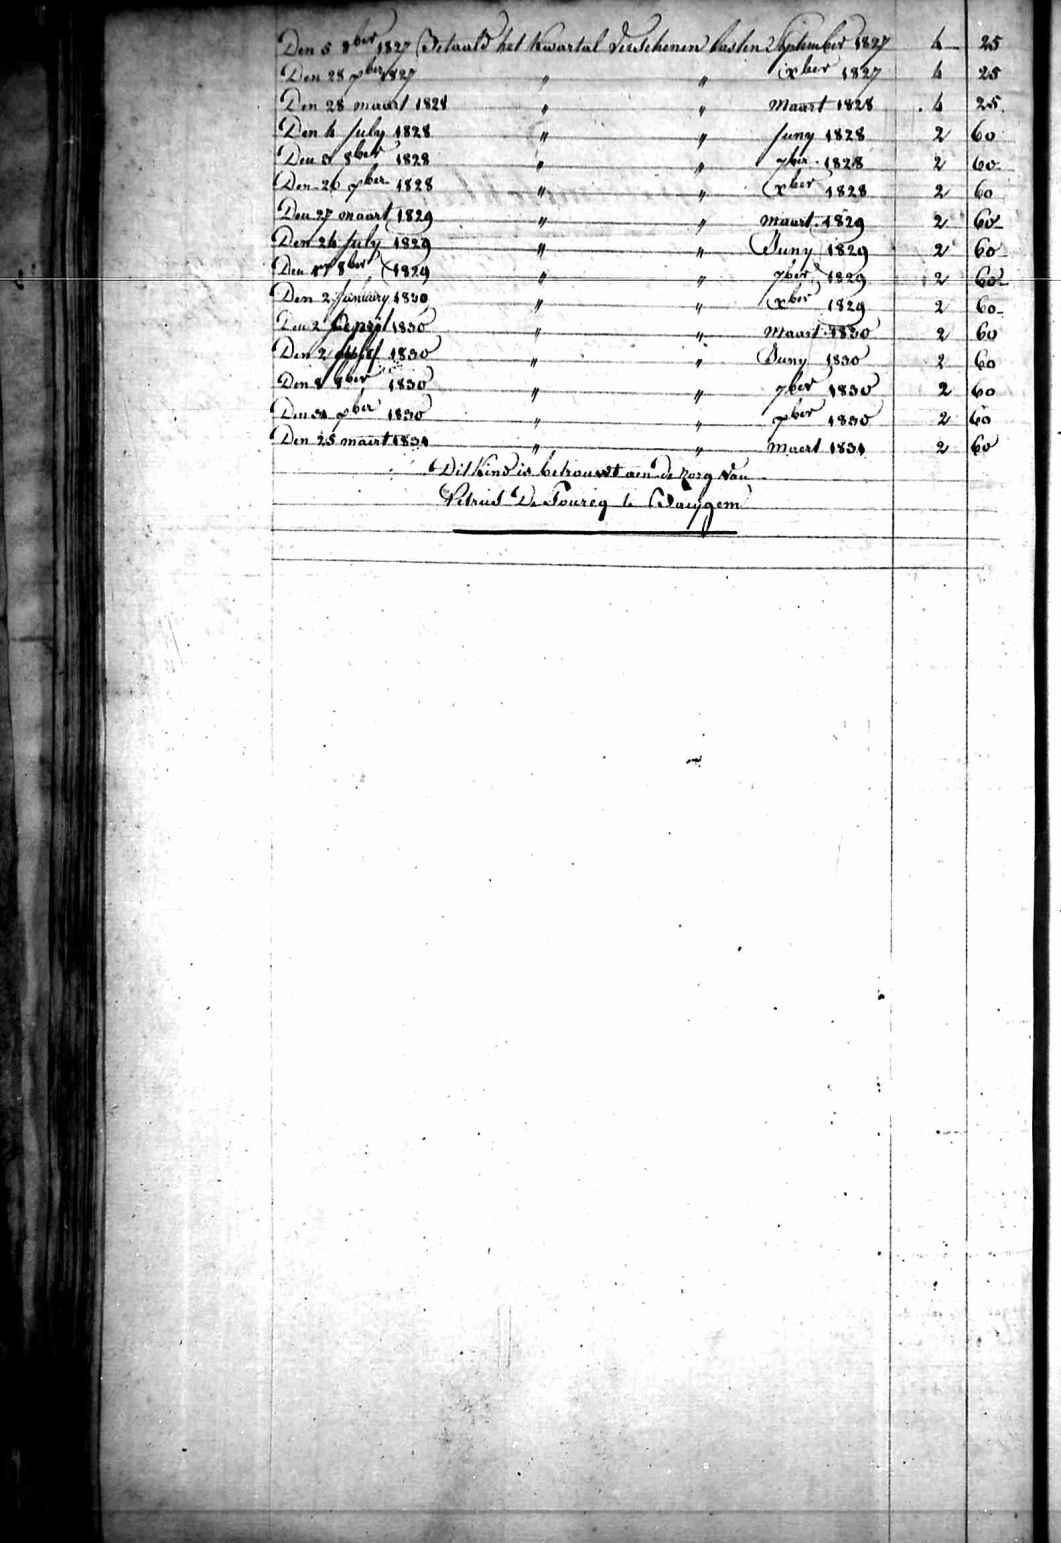 Den 5 8ber 1827 Betaald het Kwartal Verschenen lasten September 1827 4 25
Den 28 xber 1827 " " xber 1827 4 25
Den 28 maart 1828 " " Maart 1828 4 25
Den 4 July 1828 " " Juny 1828 2 60
Den 8 8ber 1828 " " 7ber 1828 2 60
Den 26 xber 1828 " " xber 1828 2 60
Den 27 maart 1829 " " Maart 1829 2 60
Den 24 July 1829 " " Juny 1829 2 60
Den 17 8ber 1829 " " 7ber 1829 2 60
Den 2 January 1830 " " xber 1829 2 60
Den 2 April 1830 " " Maart 1830 2 60
Den 2 1830 " " Juny 1830 2 60
Den 8 8ber 1830 " " 7ber 1830 2 60
Den 31 xber 1830 " " xber 1830 2 60
Den 25 maert 1831 " " Maert 1831 2 60
Dit Kind is betrouwt aen de Zorg Van
Petrus De te